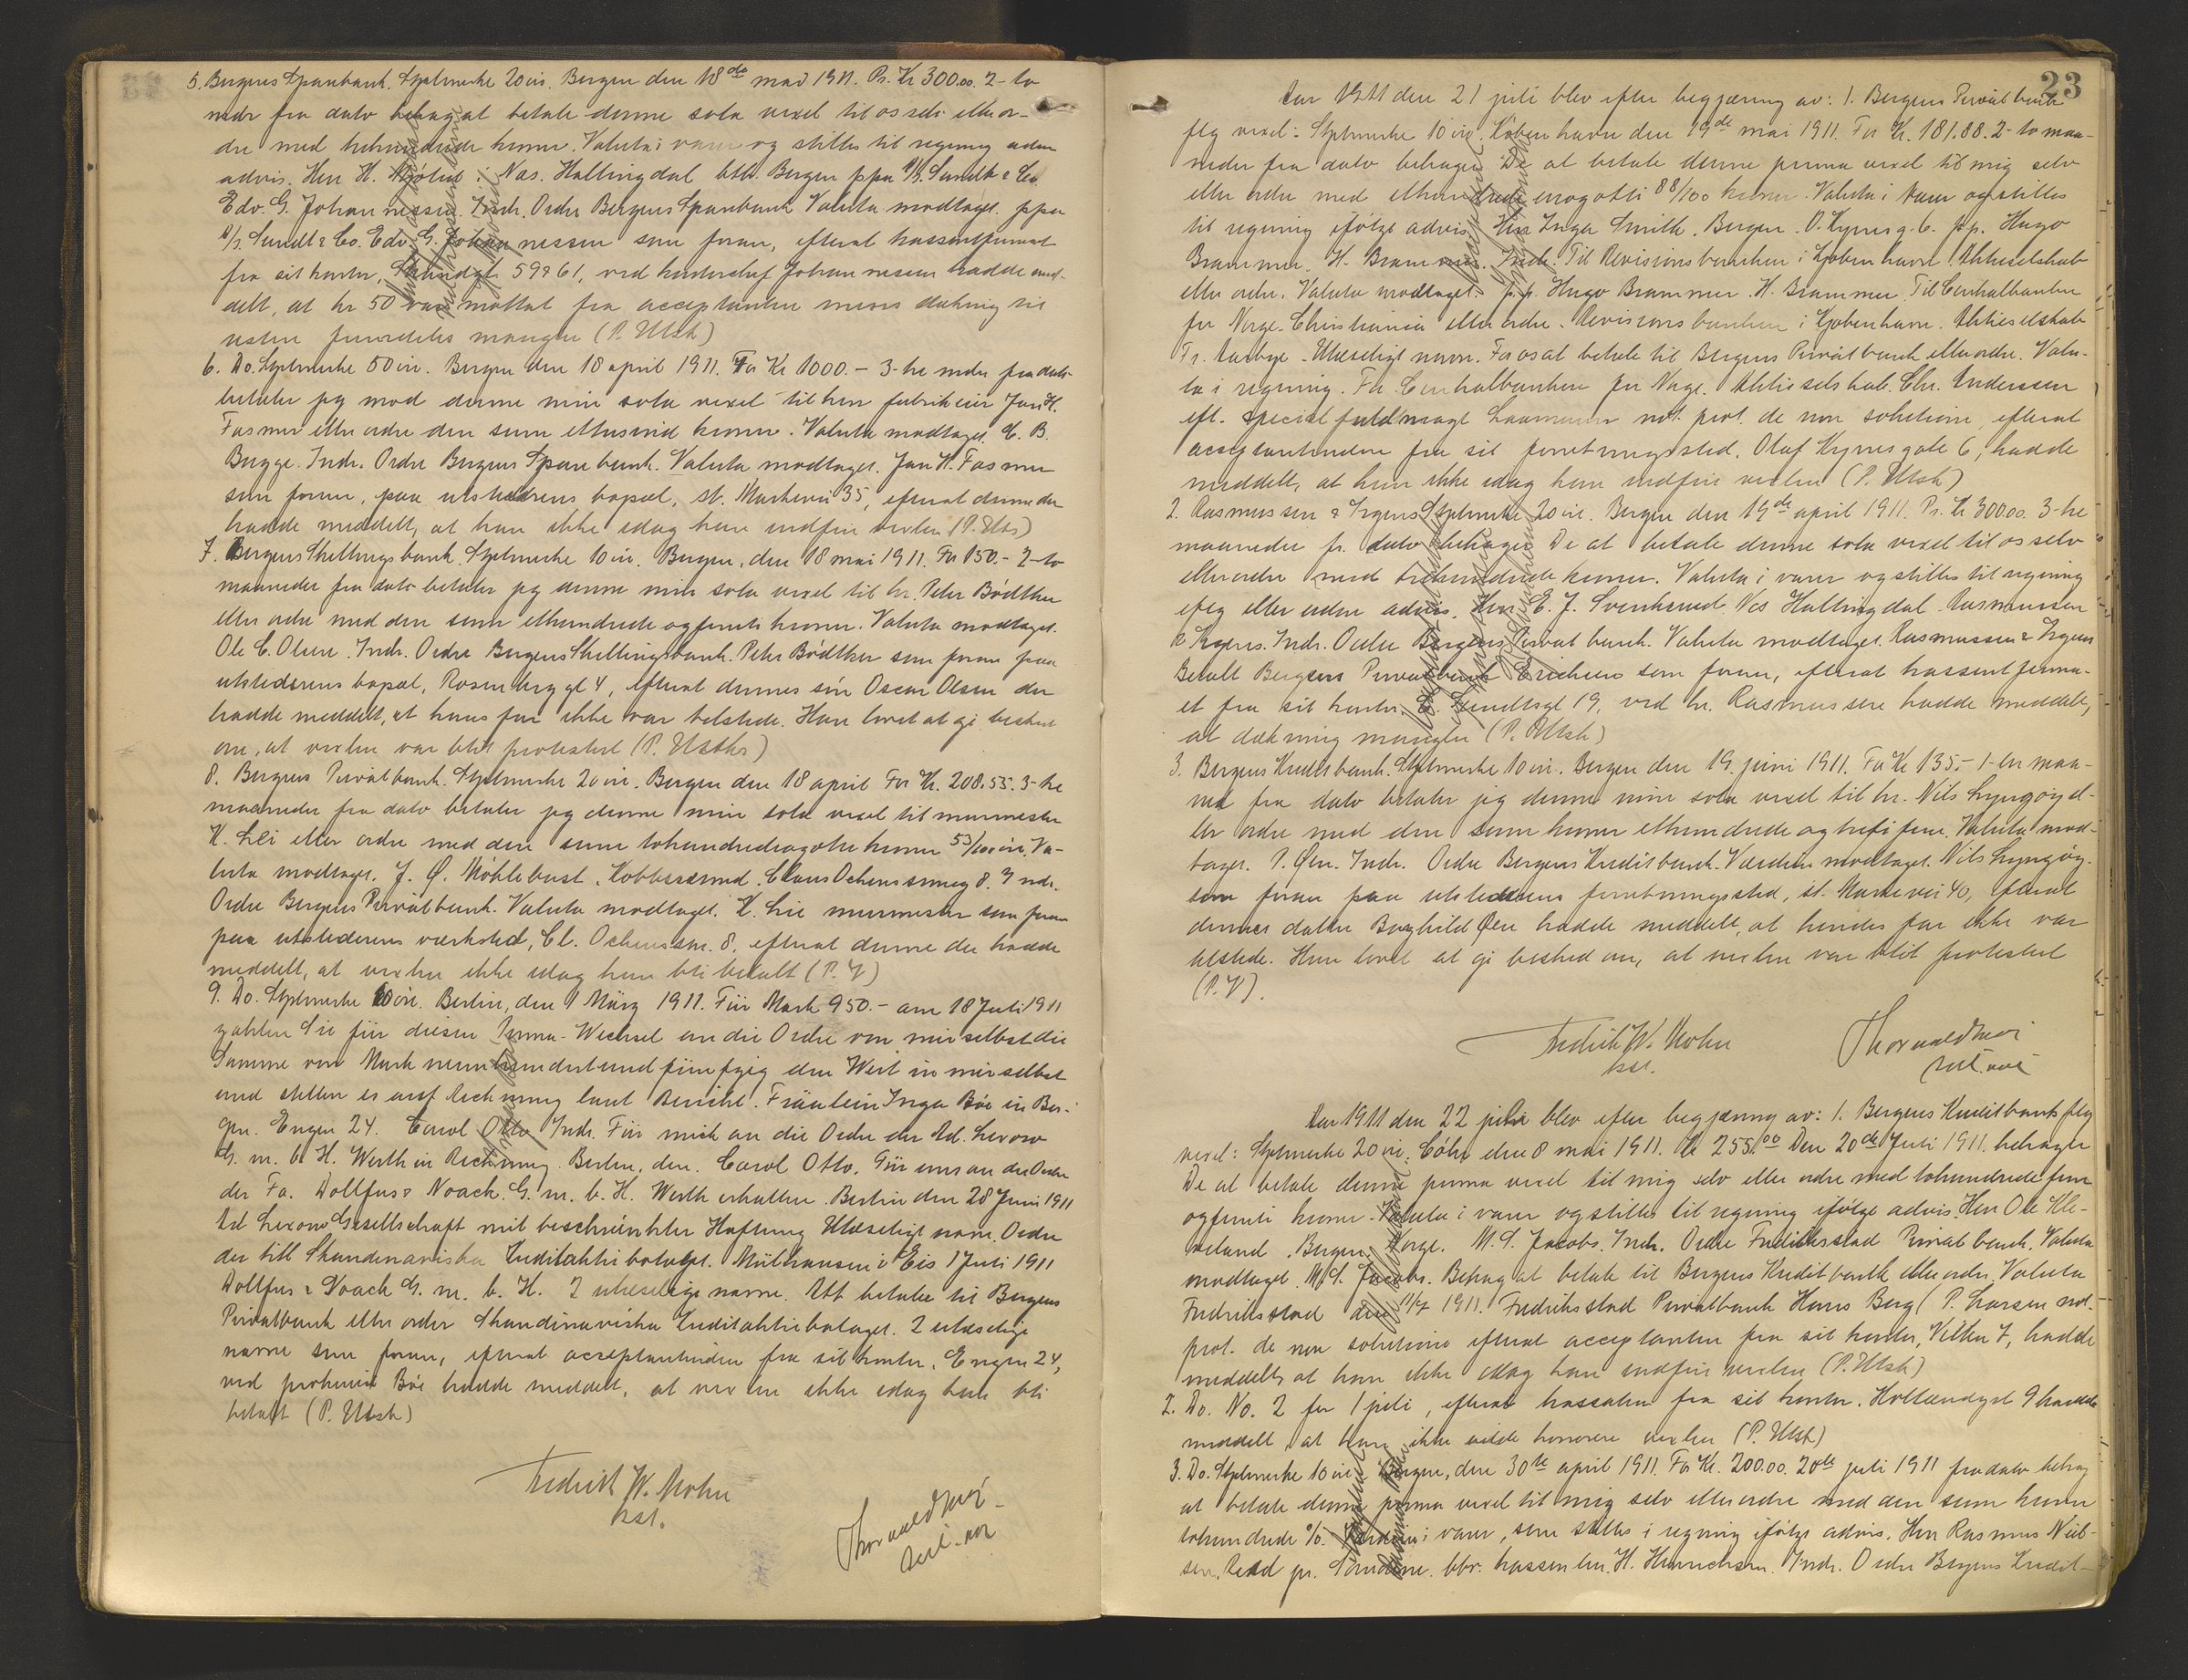 5. Bergens Sparebank. Stplmerke 20 øre. Bergen den 18de mai 1911. Pr. Kr 300.00. 2-to
mdr fra dato behag at betale denne sola vexel til os selv eller or-
dre med trehundrede kroner. Valuta i varer og stilles til regning uden
advis. Herr H. Nes. Hallingdal btlb. Bergen ppa A/S. Sundt & Co.
Edv. G. Johannessen. Indr. Ordre Bergens Sparebank Valuta modtaget. ppa
A/S. Sundt & Co. Edv. G. Johannessen som foran, efterat trassentfirmaet
fra sit kontor, Strandgt. 59 & 61, ved kontorchef Johannessen hadde med-
delt, at kr 50 var mottat fra acceptanten mens dækning til
resten fremdeles mangler (P. Utsk)
6. Do. Stplmerke 50 øre. Bergen den 18 april 1911. For Kr 1000.- 3-tre mdr fra dato
betaler jeg mod denne min sola vexel til herr fabrikeier Jan H.
Fasmer eller ordre den sum ettusind kroner. Valuta modtaget. C. B.
Bugge. Indr. Ordre Bergens Sparebank. Valuta modtaget. Jan H. Fasmer
som foran, paa utstederens bopæl, st. Markevei 35, efterat denne der
hadde meddelt, at han ikke idag kan indfri vexlen (P. Uts)
7. Bergens Skillingsbank. Stplmerke 10 øre. Bergen, den 18 mai 1911. For 150.- 2-to
maaneder fra dato betaler jeg denne min sola vexel til hr. Peter Bødtker
eller ordre med den sum ethundrede og femti kroner. Valuta modtaget.
Ole C. Olsen. Indr. Ordre Bergens Skillingsbank. Peter Bødtker som foran paa
utstederens bopæl, Rosenberggt 4, efterat dennes søn Oscar Olsen der
hadde meddelt, at hans far ikke var tilstede. Han lovet at gi besked
om, at vexlen var blit protestert (P. Utstks)
8. Bergens Privatbank. Stplmerke 20 øre. Bergen den 18 april For Kr. 208.55. 3-tre
maaneder fra dato betaler jeg denne min sola vexel til murmester
K. Lie eller ordre med den sum tohundredeogotte kroner 53/100 øre. Va-
luta modtaget. J. Ø. Møhlebust, Kobbersmed. Claus Ochenssmug 8. Indr.
Ordre Bergens Privatbank. Valuta modtaget. K. Lie murmester som foran
paa utstederens værksted, Cl. Ochenssm. 8. efterat denne der hadde
meddelt, at vexlen ikke idag kan bli betalt (P. V)
9. Do. Stplmerke 10 øre. Berlin, den 1 März 1911. Für Mark 950.- am 18 Juli 1911
zahlen Sie für diesen Prima-Wechsel an die Ordre von mir selbst die
Summe von Mark neunhundertundfünfzig den Wert in mir selbst
und stellen es auf Rechnung laut Bericht. Fräulein Inga Bøe in Ber-
gen. Engen 24. Carol Otto Indr. Für mich an die Ordre der Ad. Lexow
G. m. b. H. Werth in Rechnung. Berlin, den. Carol Otto. Für uns an die Ordre
der Fa. Dollfus & Noack. G. m. b. H. Werth erhalten. Berlin den 28 Juni 1911
Ad Lexow Gesellschaft mit beschränkter Haftung Ulæseligt navn. Ordre
der till Skandinaviska Kreditaktiebolaget. Mülhausen i Els 1 Juli 1911
Dollfus & Noack G. m. b. H. 2 ulæselige navne. Att betale til Bergens
Privatbank eller order Skandinaviska Kreditaktiebolaget. 2 ulæselige
navne som foran, efterat acceptantinden fra sit kontor, Engen 24,
ved prokurist Bøe hadde meddelt, at vexlen ikke idag kan bli
betalt (P. Utsk)
Fredrik W. Mohn
kst.
Thorvald
23
Aar 1911 den 21 juli blev efter begjæring av: 1. Bergens Privatbank
flg vexel: Stplmerke 10 øre. København den 19de mai 1911. For Kr. 181.88. 2-to maa-
neder fra dato behager De at betale denne prima vexel til mig selv
eller ordre med ethundrede enogotti 88/100 kroner. Valuta i varer og stilles
til regning ifølge advis. Inga Smith. Bergen. O. Kyrresg. 6. pp. Hugo
Brammer. H. Brammer. Indr. Til Revisionsbanken i Kjøbenhavn Aktieselskab
eller ordre. Valuta modtaget. p.p. Hugo Brammer. H. Brammer. Til Centralbanken
for Norge. Christiania eller ordre. Revisionsbanken i Kjøbenhavn. Aktieselskab
Fr. Ulæseligt navn. For os at betale til Bergens Privatbank eller ordre. Valu-
ta i regning. For Centralbanken for Norge. Aktieselskab. Chr. Anderssen
eft. special fuldmagt not. prot. de non solutione, efterat
acceptantinden fra sit forretningssted, Olaf Kyrresgate 6, hadde
meddelt, at hun ikke idag kan indfri vexlen (P. Utsk)
2. Rasmussen & Irgens Stplmerke 20 øre. Bergen den 19de april 1911. Pr. Kr 300.00. 3-tre
maaneder fr. dato behager De at betale denne sola vexel til os selv
eller ordre med trehundrede kroner. Valuta i varer og stilles til regning
efeg eller uden advis. Herr E. J. Svenkerud Nes Hallingdal. Rasmussen
& Irgens. Indr. Ordre Bergens Privatbank. Valuta modtaget. Rasmussen & Irgens
Betalt Bergens Privatbank Erichsen som foran, efterat trassentfirma-
et fra sit kontor, C. Sundtsgt 19, ved hr. Rasmussen hadde meddelt,
at dækning mangler (P. Utsk)
3. Bergens Kreditbank. Stplmerke 10 øre. Bergen den 19. juni 1911. For Kr 135.- 1-en maa-
ned fra dato betaler jeg denne min sola vexel til hr. Nils Lyngøy el-
ler ordre med den sum kroner ethundrede og treti fem. Valuta mod-
taget. P. Øen. Indr. Ordre Bergens Kreditbank. Værdien modtaget. Nils Lyngøy.
som foran paa utstederens forretningssted, st. Markevei 40, efterat
dennes datter Borghild Øen hadde meddelt, at hendes far ikke var
tilstede. Hun lovet at gi besked om, at vexlen var blit protestert
(P. V).
Fredrik W. Mohn
kst.
Thorvald
Aar 1911 den 22 juli blev efter begjæring av: 1. Bergens Kreditbank flg
vexel: Stplmerke 20 øre. den 8 mai 1911. Kr 255.00 Den 20de Juli 1911. behager
De at betale denne prima vexel til mig selv eller ordre med tohundrede fem
ogfemti kroner. Valuta i varer og stilles til regning ifølge advis. Herr Ole Kle-
veland. Bergen. Norge. M. S. Jacobs. Indr. Ordre Fredriksstad Privatbank. Valuta
modtaget. M. S. Jacobs. Behag at betale til Bergens Kreditbank eller ordre. Valuta
Fredriksstad den 11/7 1911. Fredriksstad Privatbank Hans Berg / P. Larsen not.
prot. de non solutione efterat acceptanten fra sit kontor, 7, hadde
meddelt, at han ikke idag kan indfri vexlen (P. Utsk)
2. Do. No. 2 for 1 juli, efterat trassaten fra sit kontor. Hollændgt 9 hadde
meddelt, at han ikke vilde honorere vexlen (P. Utsk)
3. Do. Stplmerke 10 øre. Bergen, den 30te april 1911. For Kr. 200.00. 20de juli 1911 fra dato behag
at betale denne prima vexel til mig selv eller ordre med den sum kroner
tohundrede %. Værdien i varer, som stilles i regning ifølge advis. Herr Rasmus Niel-
sen, Reed pr. Sandene. bbr. trassenten. H. Hinrichsen. Indr. Ordre Bergens Kredit-